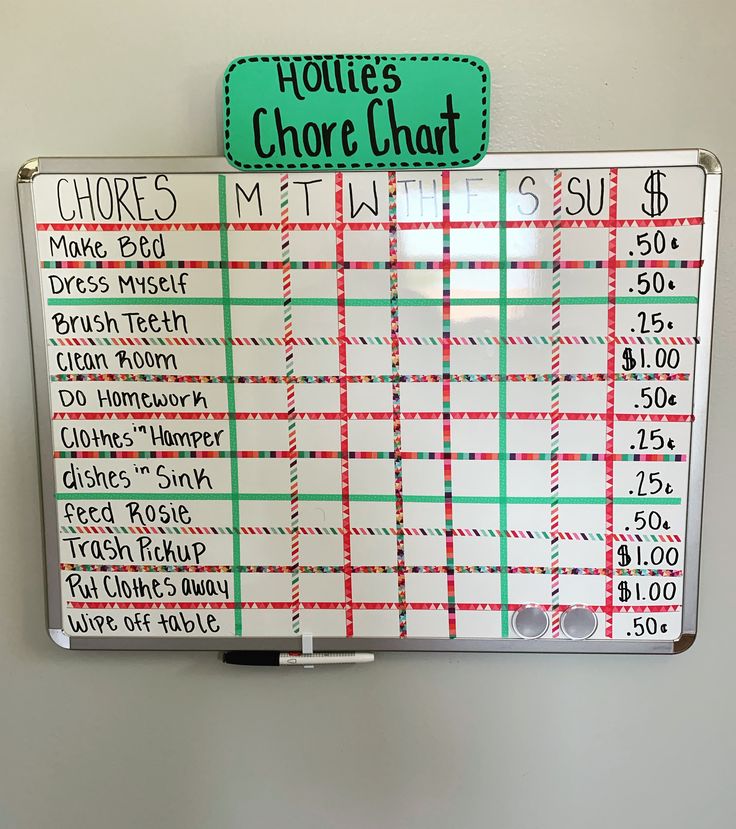 Hollie's
Chore Chart
CHORES M T W TH F S SU $
Make Bed .50¢
Dress Myself .50¢
Brush Teeth .25¢
Clean Room $1.00
Do Homework .50¢
Clothes in Hamper .25¢
dishes in Sink .25¢
feed Rosie .50¢
Trash Pickup $1.00
Put Clothes away $1.00
Wipe off table .50¢